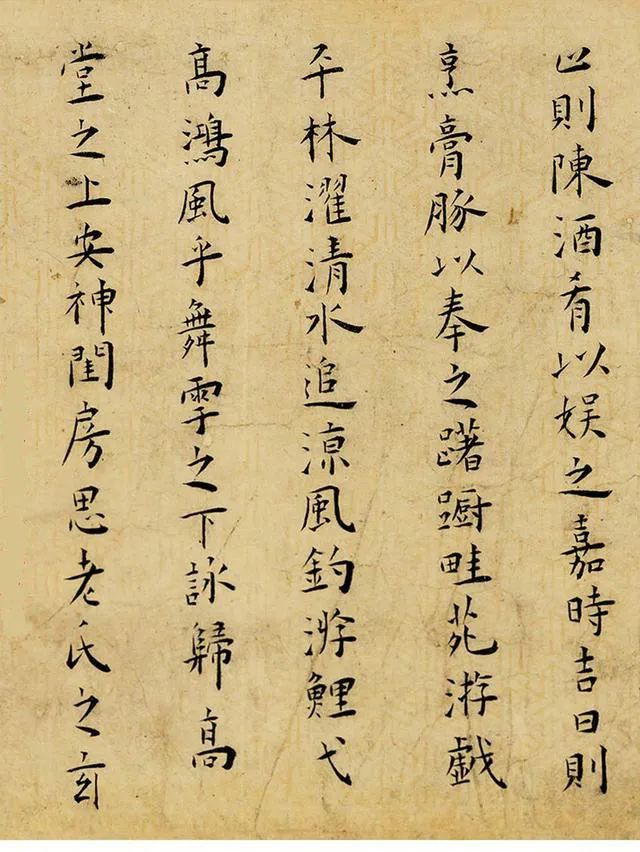 止則陳酒肴以娱之嘉時吉日則
烹膏豚以奉之躇蹰畦苑游戲
平林濯清水追凉風釣游鯉弋
高鴻風乎舞雩之下詠歸高
堂之上安神閨房思老氏之玄